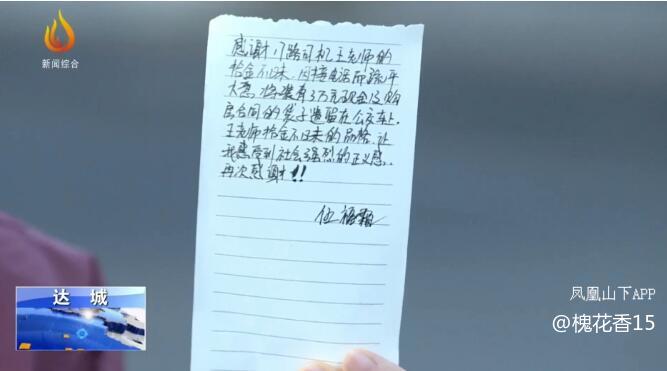 新闻综合
感谢17路司机王老师的
拾金不昧,因接电话而疏乎
大意,将装有3万元现金及购
房合同的袋子遗留在公交车上,
王老师拾金不昧的品格,让
我感受到社会强烈的正义感..
再次感谢!!
伍
达城
凤凰山下APP
@槐花香15